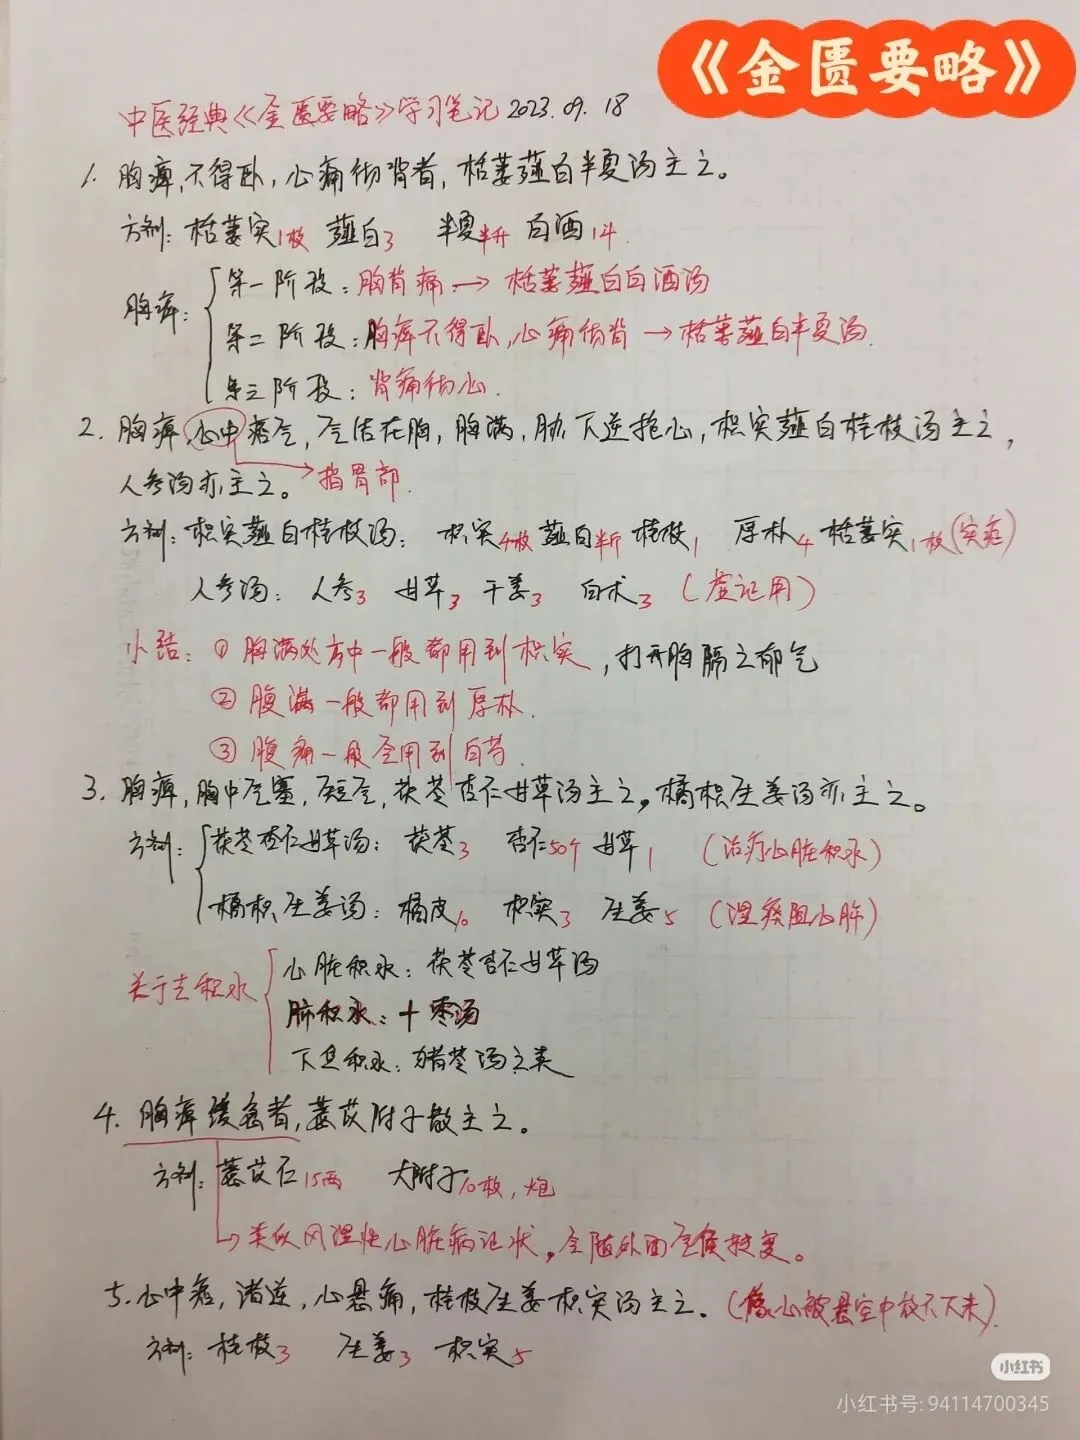 《金匮要略》
中医经典《金匮要略》学习笔记 2023.09.18
1. 胸痹,不得卧,心痛彻背者,栝蒌薤白半夏汤主之。
方剂:栝蒌实1枚 薤白3 半夏半升 白酒1斗
胸痹:
第一阶段:胸背痛→栝蒌薤白白酒汤
第二阶段:胸痹不得卧,心痛彻背→栝蒌薤白半夏汤.
第三阶段:背痛彻心.
2. 胸痹,心中痞气,气结在胸,胸满,胁下逆抢心,枳实薤白桂枝汤主之,
人参汤亦主之。→指胃部.
方剂:枳实薤白桂枝汤:枳实4枚 薤白半斤 桂枝1 厚朴4 栝蒌实1枚(实症)
人参汤:人参3 甘草3 干姜3 白术3 (虚证用)
小结:①胸满处方中一般都用到枳实,打开胸膈之郁气
②腹满一般都用到厚朴.
③腹痛一般会用到白芍.
3. 胸痹,胸中气塞,短气,茯苓杏仁甘草汤主之,橘枳生姜汤亦主之。
方剂:
茯苓杏仁甘草汤:茯苓3 杏仁50个 甘草1 (治疗心脏积水)
橘枳生姜汤:橘皮10 枳实3 生姜5 (湿痰阻心肺)
关于去积水
心脏积水:茯苓杏仁甘草汤
肺积水:十枣汤
下焦积水:猪苓汤之类
4. 胸痹缓急者,薏苡附子散主之。
方剂:薏苡仁15两 大附子10枚,炮
→类似风湿性心脏病证状,会随外面气候转变。
5. 心中痞,诸逆,心悬痛,桂枝生姜枳实汤主之。(像心被悬空中放不下来).
方剂:桂枝3 生姜3 枳实5
小红书
小红书号:94114700345